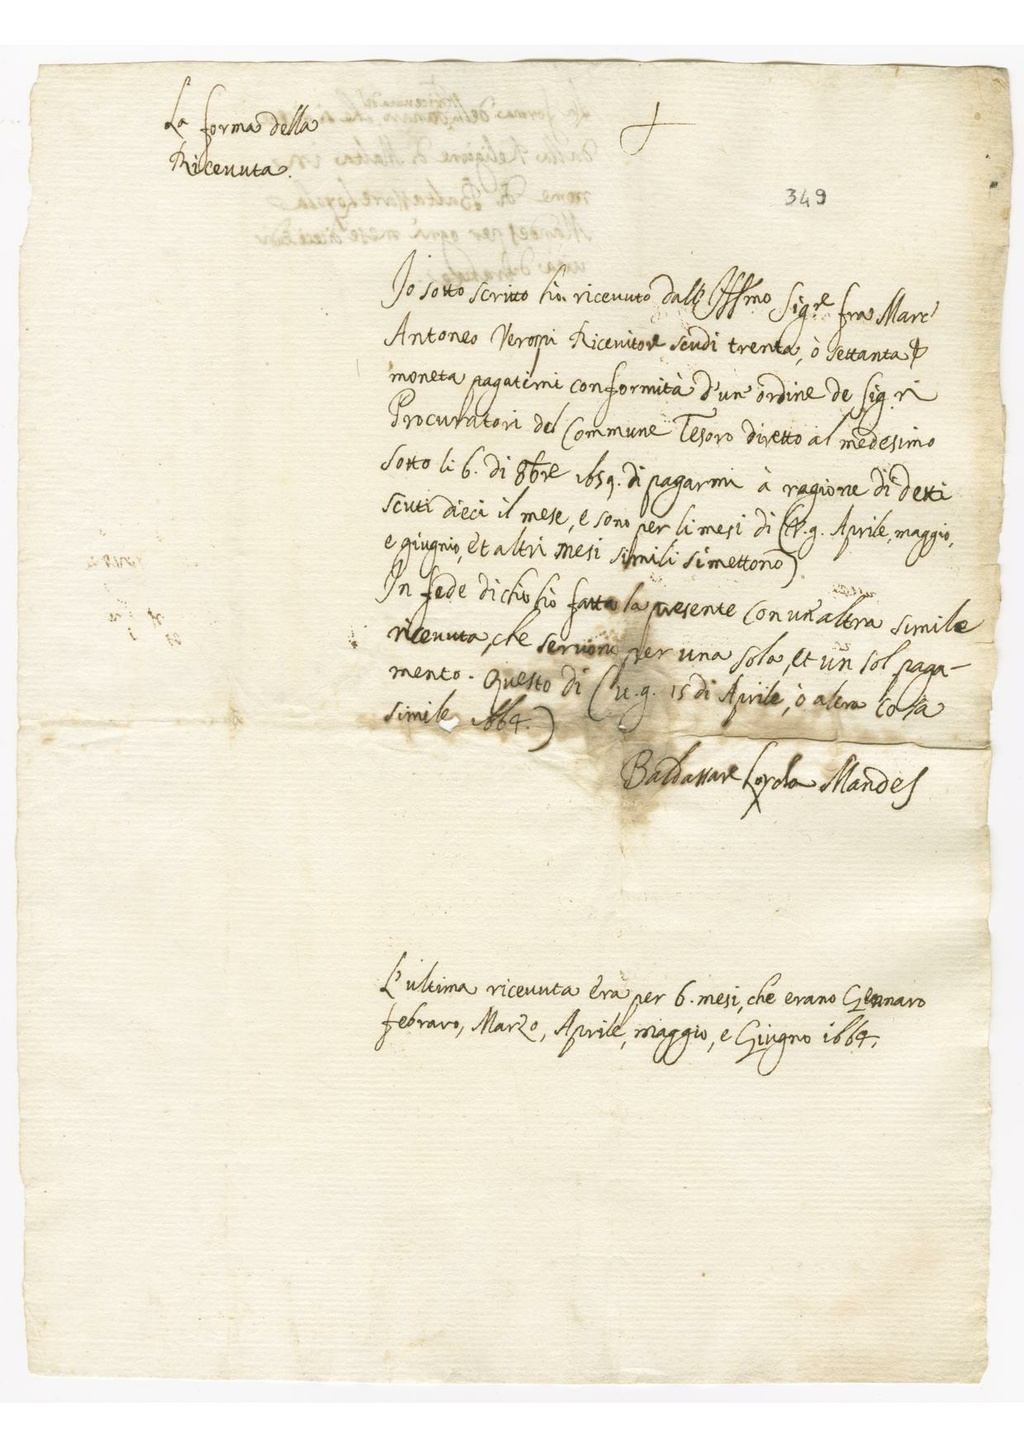 La forma della
Ricevuta.
349
Io sotto scritto hò ricevuto dall' Illmo Sig.re fra Marc'
Antoneo Verospi Ricevitore scudi trenta, ò settanta
moneta pagatimi conformità d'un ordine de Sig.ri
Procuratori del Commune Tesoro diretto al medesimo
sotto li 6. di 8bre 1659. di pagarmi à ragione di detti
scuti dieci il mese, e sono per li mesi di (V.g. Aprile, maggio,
e giugnio, et altri mesi simili si mettono)
In fede di chio hò fatta la presente con un'altra simile
ricevuta, che servono per una sola, et un sol paga-
mento. Questo di (V.g. 15 di Aprile, ò altra cosa
simile 1664.)
Baldassare Loyola Mandes
L'ultima ricevuta era per 6. mesi, che erano Gennaro
febraro, Marzo, Aprile, maggio, e Giugno 1664.